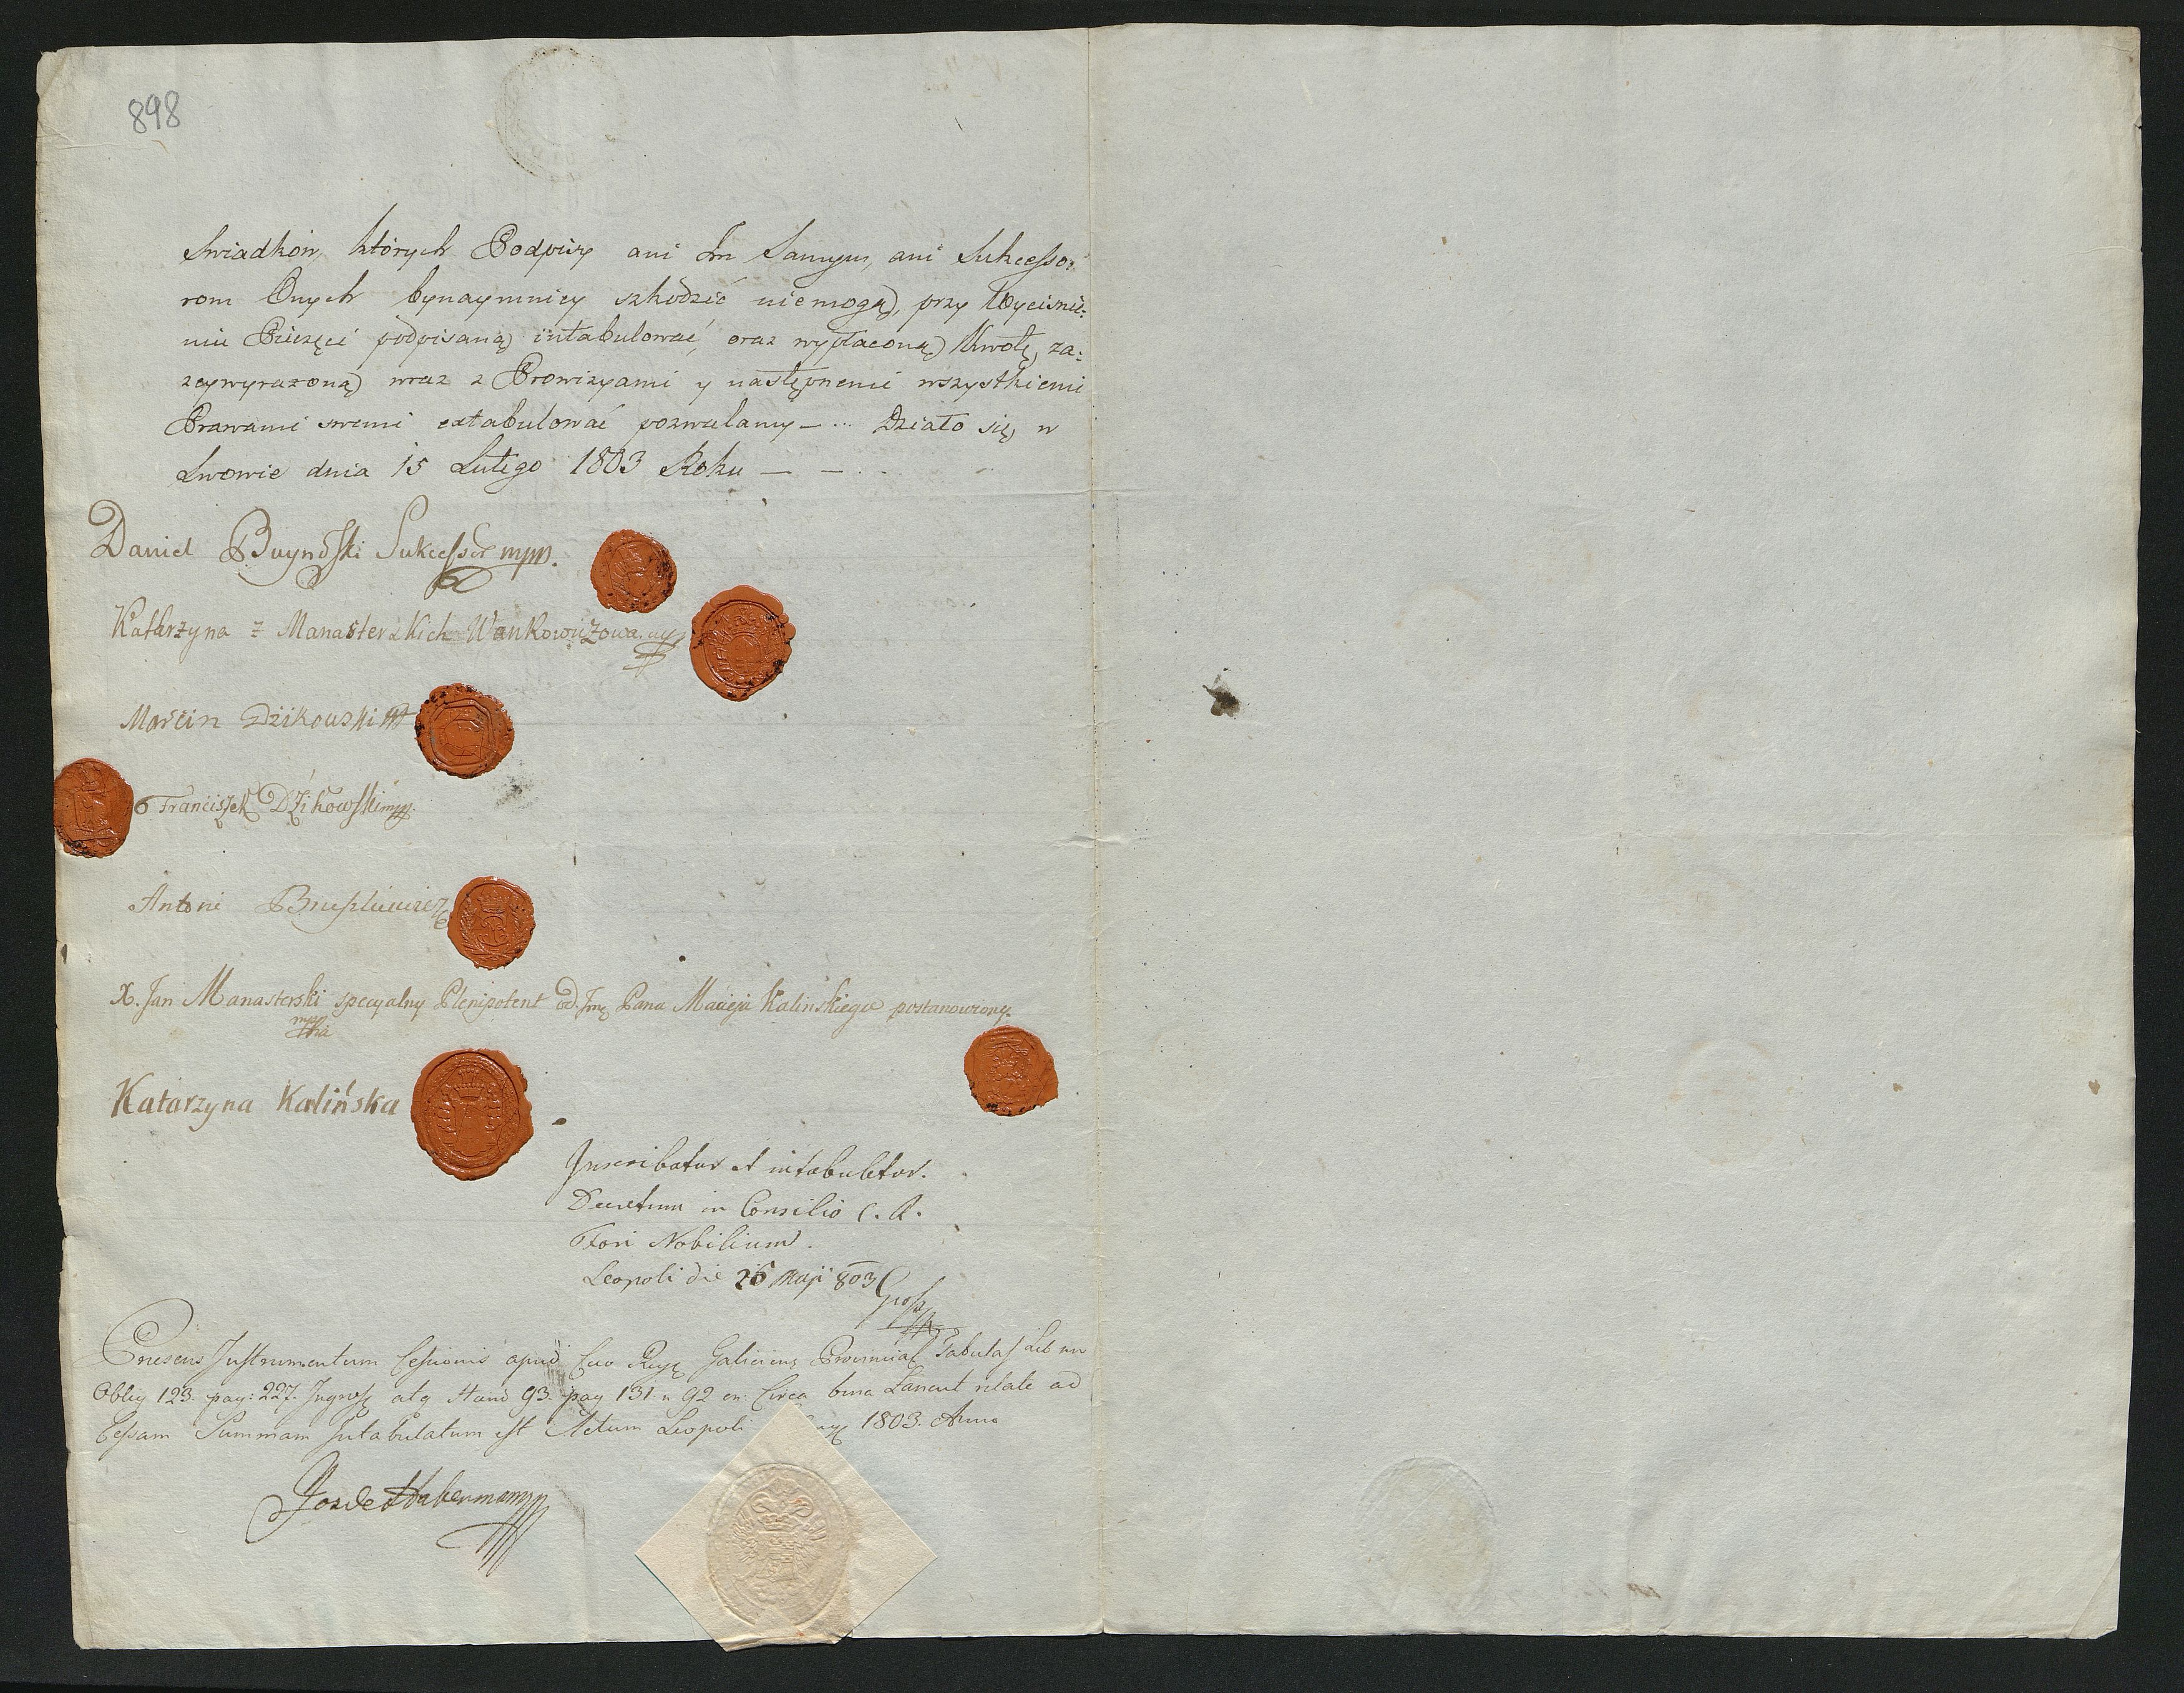 898
Swiadków, których Podpisy ani Im Samym, ani Sukcesso:
rom Onych bynaymniey szkodzić niemogą, przy Wyciśnie:
niu Pieczęci podpisaną intabulować, oraz wypłaconą Kwotę, za:
zeywyrazoną wraz z Prowizyami y następnemi wszystkiemi
Prawami swemi extabulować pozwalamy — ... Działo się w
Lwowie dnia 15 Lutego 1803 Roku — — . .
Daniel Buynowski Sukcessor mpp.
Katarzyna z Manasterskich Wankowiczowa
Marcin Dzikouski
Franciszek Dzikowski mpp.
Antoni
X. Jan Manasterski specyalny Plenipotent od Jmę Pana Macieja Kalinskiego postanowiony
mpp
Katarzyna Kalińska
Inscribatur et intabuletur.
Decretum in Consilio C. R.
Fori Nobilium.
Leopoli die 16 Maji 803
Præsens Instrumentum Cessionis apud Cæo Regę Galiciens Provincial Tabulas Lib
Oblig 123. pag: 227. Ingross atq Hæred 93. pag 131. n 92 on: Circa bona Lancut relate ad
Cessam Summam Intabulatum est Actum Leopoli 1803. Anno
Habermann